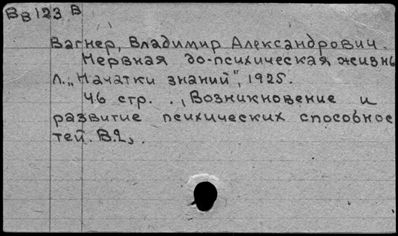 Вв 123 В
Вагнер, Владимир Александрович.
Нервная до-психическая жизнь
Л. „Начатки знаний", 1925.
46 стр. „Возникновение и
развитие психических способнос
тей. В.2„.